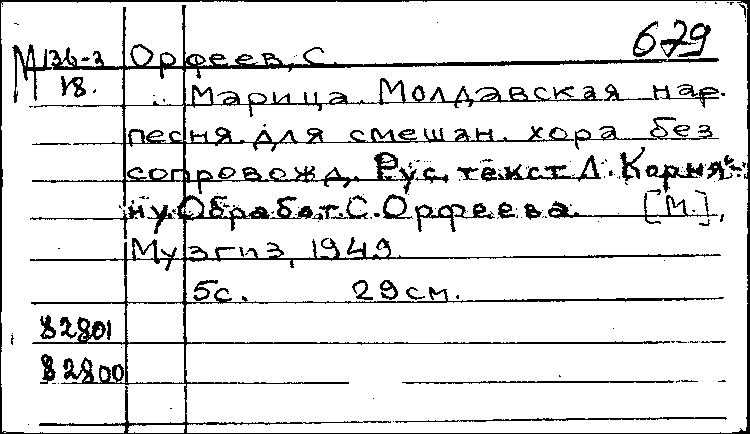 679
М 136-3 Орфеев, С.
18. Марица. Молдавская нар.
песня. Для смешан. хора без
сопровожд. Рус. текст Л. Корня-
ну. Обработ. С. Орфеева. [М.],
Музгиз, 1949.
5с. 29см.
82801
82800